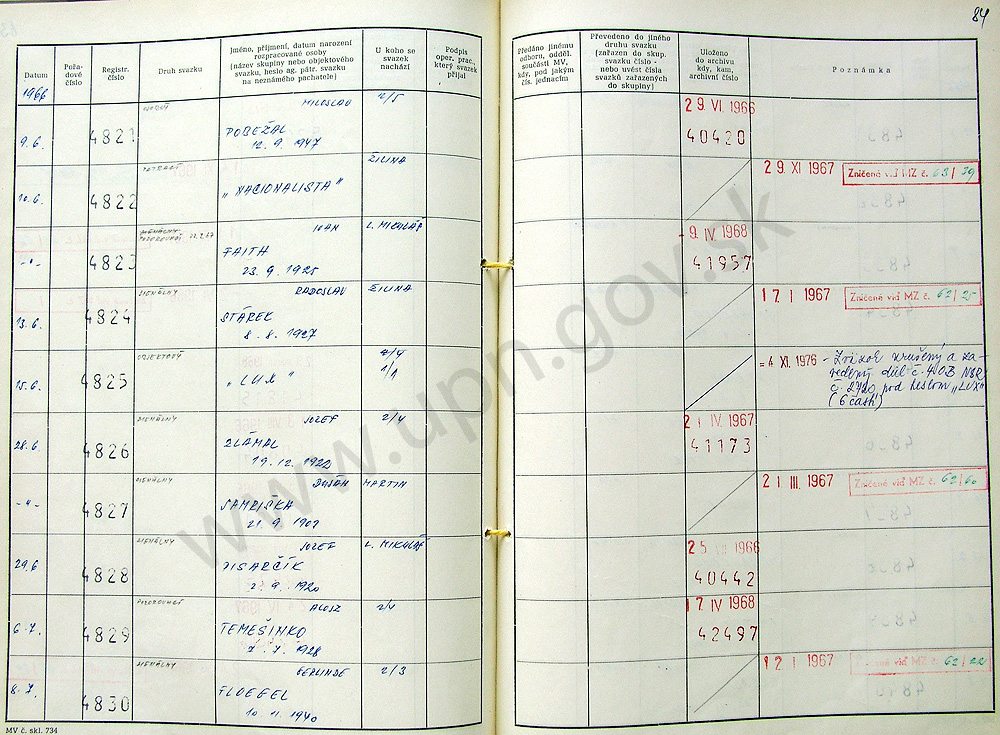 84
Datum
Pořa-
dové
číslo
Registr.
číslo
Druh svazku
Jméno, příjmení, datum narození
rozpracované osoby
(název skupiny nebo objektového
svazku, heslo ag. pátr. svazku
na neznámého pachatele)
U koho se
svazek
nachází
Podpis
oper. prac.,
který svazek
přijal
Předáno jinému
odboru, odděl.
součásti MV,
kdy, pod jakým
čís. jednacím
Převedeno do jiného
druhu svazku
(zařazen do skup.
svazku číslo -
nebo uvést čísla
svazků zařazených
do skupiny)
Uloženo
do archivu
kdy, kam,
archivní číslo
Poznámka
1966
9.6. 4821 MILOSLAV 2/5
POBEŽAL
12. 9. 1947
29. VI. 1966
40420
10.6. 4822 ŽILINA
„NACIONALISTA"
29. XI 1967 Zničené viď MZ č. 63/39
-"- 4823 IVAN L. MIKULÁŠ
FAITH
23. 9. 1925
9. IV. 1968
41957
13.6. 4824 SIGNÁLNY RADOSLAV ŽILINA
STAREK
8. 8. 1927
17. I 1967 Zničené viď MZ č. 62/25
15.6. 4825 OBJEKTOVÝ 2/4
1/1
„LUX"
= 4 XI. 1976 - Zväzok zrušený a za-
vedený
pod heslom „LUX"
(6 častí)
28.6 4826 SIGNÁLNY JOZEF 2/4
ZLÁMAL
19. 12. 1922
21. IV. 1967
41173
-"- 4827 SIGNÁLNY DUŠAN MARTIN
21. 9. 1909
21 III. 1967 Zničené viď MZ č. 62/60
29.6 4828 SIGNÁLNY JOZEF L. MIKULÁŠ
PISARČÍK
2. 9. 1920
1966
40442
6.7. 4829 POZOROVACÍ ALOJZ 2/4
TEMEŠINKO
7. 7. 1928
17. IV 1968
42497
8.7. 4830 SIGNÁLNY GERLINDE 2/3
FLOEGEL
10 11. 1940
12. I 1967 Zničené viď MZ č. 62/22
MV č. skl. 734
www.upn.gov.sk